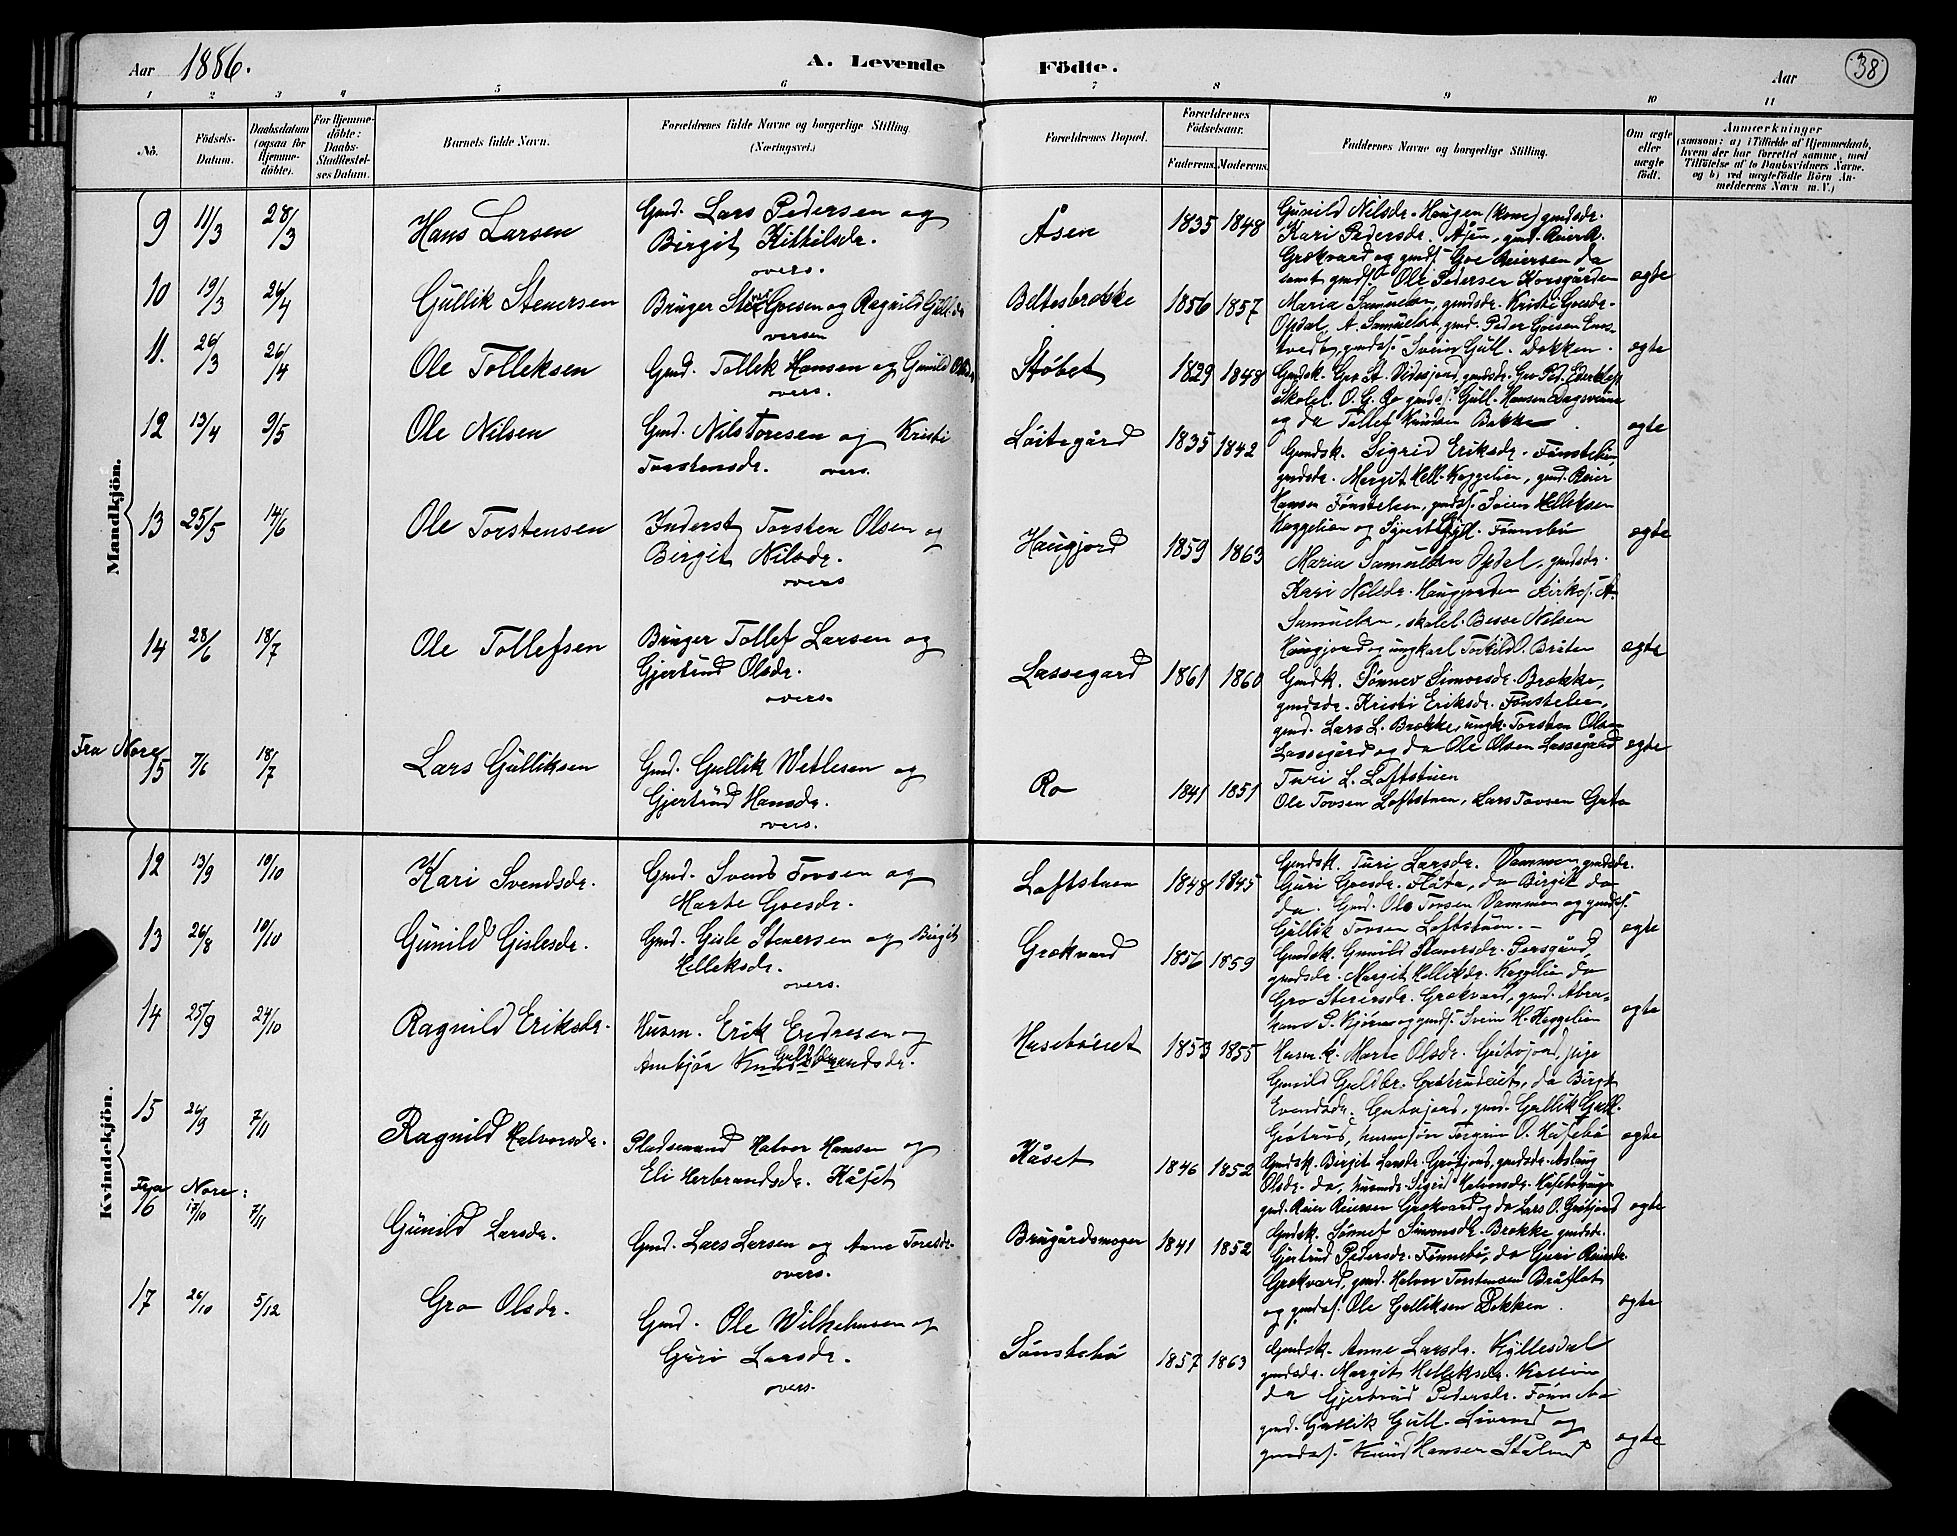 Aar 1886. A. Levende Födte. Aar 38
1 2 3 4 5 6 7 8 9 10 11
No. Födsels-Datum. Daabsdatum (ogsaa for Hjemme-döbte). For Hjemme-döbte: Daabs-Stadfæstel-ses Datum. Barnets fulde Navn. Forældrenes fulde Navne og borgerlige Stilling. (Næringsvei.) Forældrenes Bopæl. Forældrenes Födselsaar. Faderens. Moderens. Faddernes Navne og borgerlige Stilling. Om ægte eller uægte født.
Anmærkninger
(saasom: a) i Tilfælde af Hjemmedaab,
hvem der har forrettet samme, med
Tilføielse af to Daabsvidners Navne,
og b) ved uægtefödte Börn An-
melderens Navn m. V.)
Mandkjön.
9 11/3 28/3 Hans Larsen Gmd. Lars Pedersen og
Birgit Kittilsdr.
overs.
Åsen 1835 1848 Gunild Nilsdr. Haugen (kone) gmdsdr.
Kari Pedersdr. Åsen, gmd. Reier R.
Grækvard og gmds. Goe Reiersen da
samt gmds. Ole Pedersen Korsgården ægte
10 19/3 26/4 Gullik Stenersen Bruger Sten Goesen og Ragnild Gull.dr
oversen
Beltesbrække 1856 1857 Maria Samuelsen, gmdsdr. Kristi Goesdr.
Opdal, A. Samuelsen, gmd. Peder Goesen
tvedt, gmds. Svein Gull. Dokken. ægte
11. 26/3 26/4 Ole Tolleksen Gmd. Tollek Hansen og Gunild Olsdr
overs.
Støbet 1829 1848 Gmdsk. Gro St. gmdsdr. Gro Ped.
skolel. O. G. Ro gmds. Gull. Hansen
og da Tollef Knudsen Bakke. ægte
12 13/4 9/5 Ole Nilsen Gmd. Nils Toresen og Kristi
Torstensdr. overs.
Löitegård 1835 1842 Gmdsk. Sigrid Eriksdr. Fönstelien,
gmdsdr. Margit Hell. Kaggelien, gmd. Reier
Hansen Fönstelien, gmds. Svein Helleksen
Kaggelien og Fönnebö ægte
13 25/5 14/6 Ole Torstensen Inderst Torsten Olsen og
Birgit Nilsdr.
overs
Haugjord 1859 1863 Maria Samuelsen Opdal, gmdsdr.
Kari Nilsdr. Haugjorden kirkes. A.
Samuelsen, skolel. Besse Nilsen
Haugjord og ungkarl Torkild O. Bråten ægte
14 28/6 18/7 Ole Tollefsen Bruger Tollef Larsen og
Gjertrud Olsdr.
overs.
Lassegard 1861 1860 Gmdk. Sönnev Simonsdr. Brække,
gmdsdr. Kristi Eriksdr. Fönstelien,
gmd. Lars L. Brække, ungk. Torsten Olsen
Lassegård og da Ole Olsen Lassegård ægte
Fra Nore
15 7/6 18/7 Lars Gulliksen Gmd. Gullik Wetlesen og
Gjertrud Hansdr.
overs.
Ro 1841 1851 Turi L. Loftstuen
Ole Tovsen Loftstuen, Lars Tovsen
Kvindekjön.
12 13/9 10/10 Kari Svendsdr. Gmd. Svend Tovsen og
Marte Goesdr.
Loftstuen 1848 1845 Gmdsk. Turi Larsdr. Vammen gmdsdr.
Guri Goesdr. Flåta, da Birgit da
da. Gmd. Ole Tovsen Vammen og gmds.
Gullik Tovsen Loftstuen. ægte
13 26/8 10/10 Gunild Gislesdr. Gmd. Gisle Stenersen og Birgit
Helleksdr.
overs.
Grækvard 1856 1859 Gmdsk. Gunild Stenersdr. Persgård,
gmdsdr. Margit Helliksdr. Kaggelien da
Gro Stenersdr. Grækvard, gmd. Abra-
ham P. og gmds. Svein H. Kaggelien ægte
14 25/9 24/10 Ragnild Eriksdr. Husm. Erik Endresen og
Ambjör Knud Guldbrandsdr.
Huseböeiet 1853 1855 Husmk. Marte Olsdr. pige
Gunild Guldbr. da Birgit
Evensdr. gmd. Gullik Gull.
Grötrud, husmsön Torgrim O. Husebö ægte
15 26/9 7/11 Ragnild Halvorsdr. Pladsemand Halvor Hansen og
Eli Herbrandsdr. Håset
Håset 1846 1852 Gmdsk. Birgit Larsdr. Grötjord, gmdsdr. Aslaug
Olsdr. da, Sigrid Halvorsdr.
gmd. Reier Reiersen Grækvard og da Lars O. Grötjord ægte
Fra Nore:
16 17/10 7/11 Gunild Larsdr. Gmd. Lars Larsen og Anne Toresdr.
overs.
Brugårdsmogen 1841 1852 Gmdsk. Sönnef Simonsdr. Brække, gmdsdr.
Gjertrud Pedersdr. Fönnebö, da Guri Reiersdr.
Grækvard, gmd. Halvor Torstensen Bråflat
og gmds. Ole Gulliksen Dokken. ægte
17 26/10 5/12 Gro Olsdr. Gmd. Ole Wilhelmsen og
Guri Larsdr.
overs.
Sönstebö 1857 1863 Gmdsk. Anne Larsdr. Kyllesdal
gmdsdr. Margit Helleksdr.
da Gjertrud Pedersdr. Fönnebö
gmd. Gullik Gull. og
gmds. Knud Hansen ægte